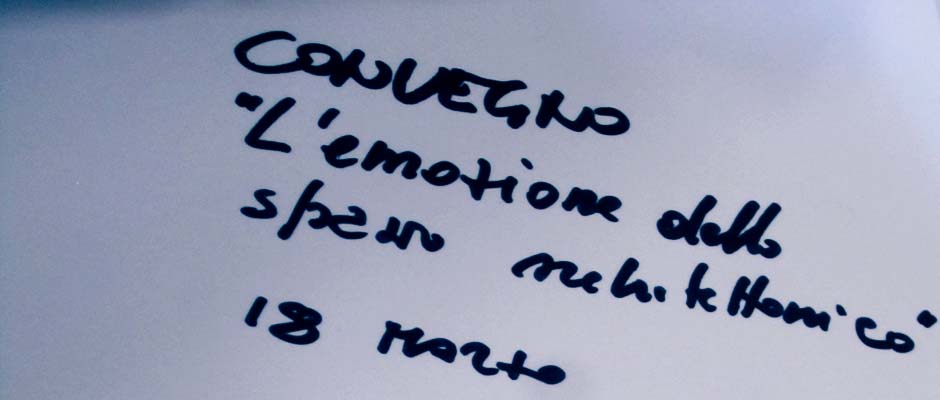 CONVEGNO
"L'emozione dello
spazio architettonico"
18 Marzo